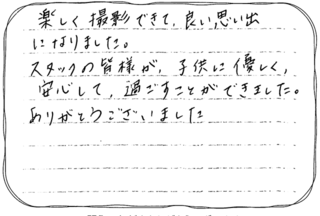 楽しく撮影できて、良い思い出
になりました。
スタッフの皆様が、子供に優しく、
安心して、過ごすことができました。
ありがとうございました